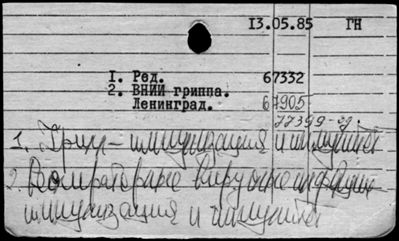 13.05.85 ГН
I. Ред. 67332
2. ВНИИ гриппа. Ленинград. 67905
77399-зд.
1. Грипп - иммунизация и иммунитет
2. Респираторные вирусные инфекции
иммунизация и иммунитет